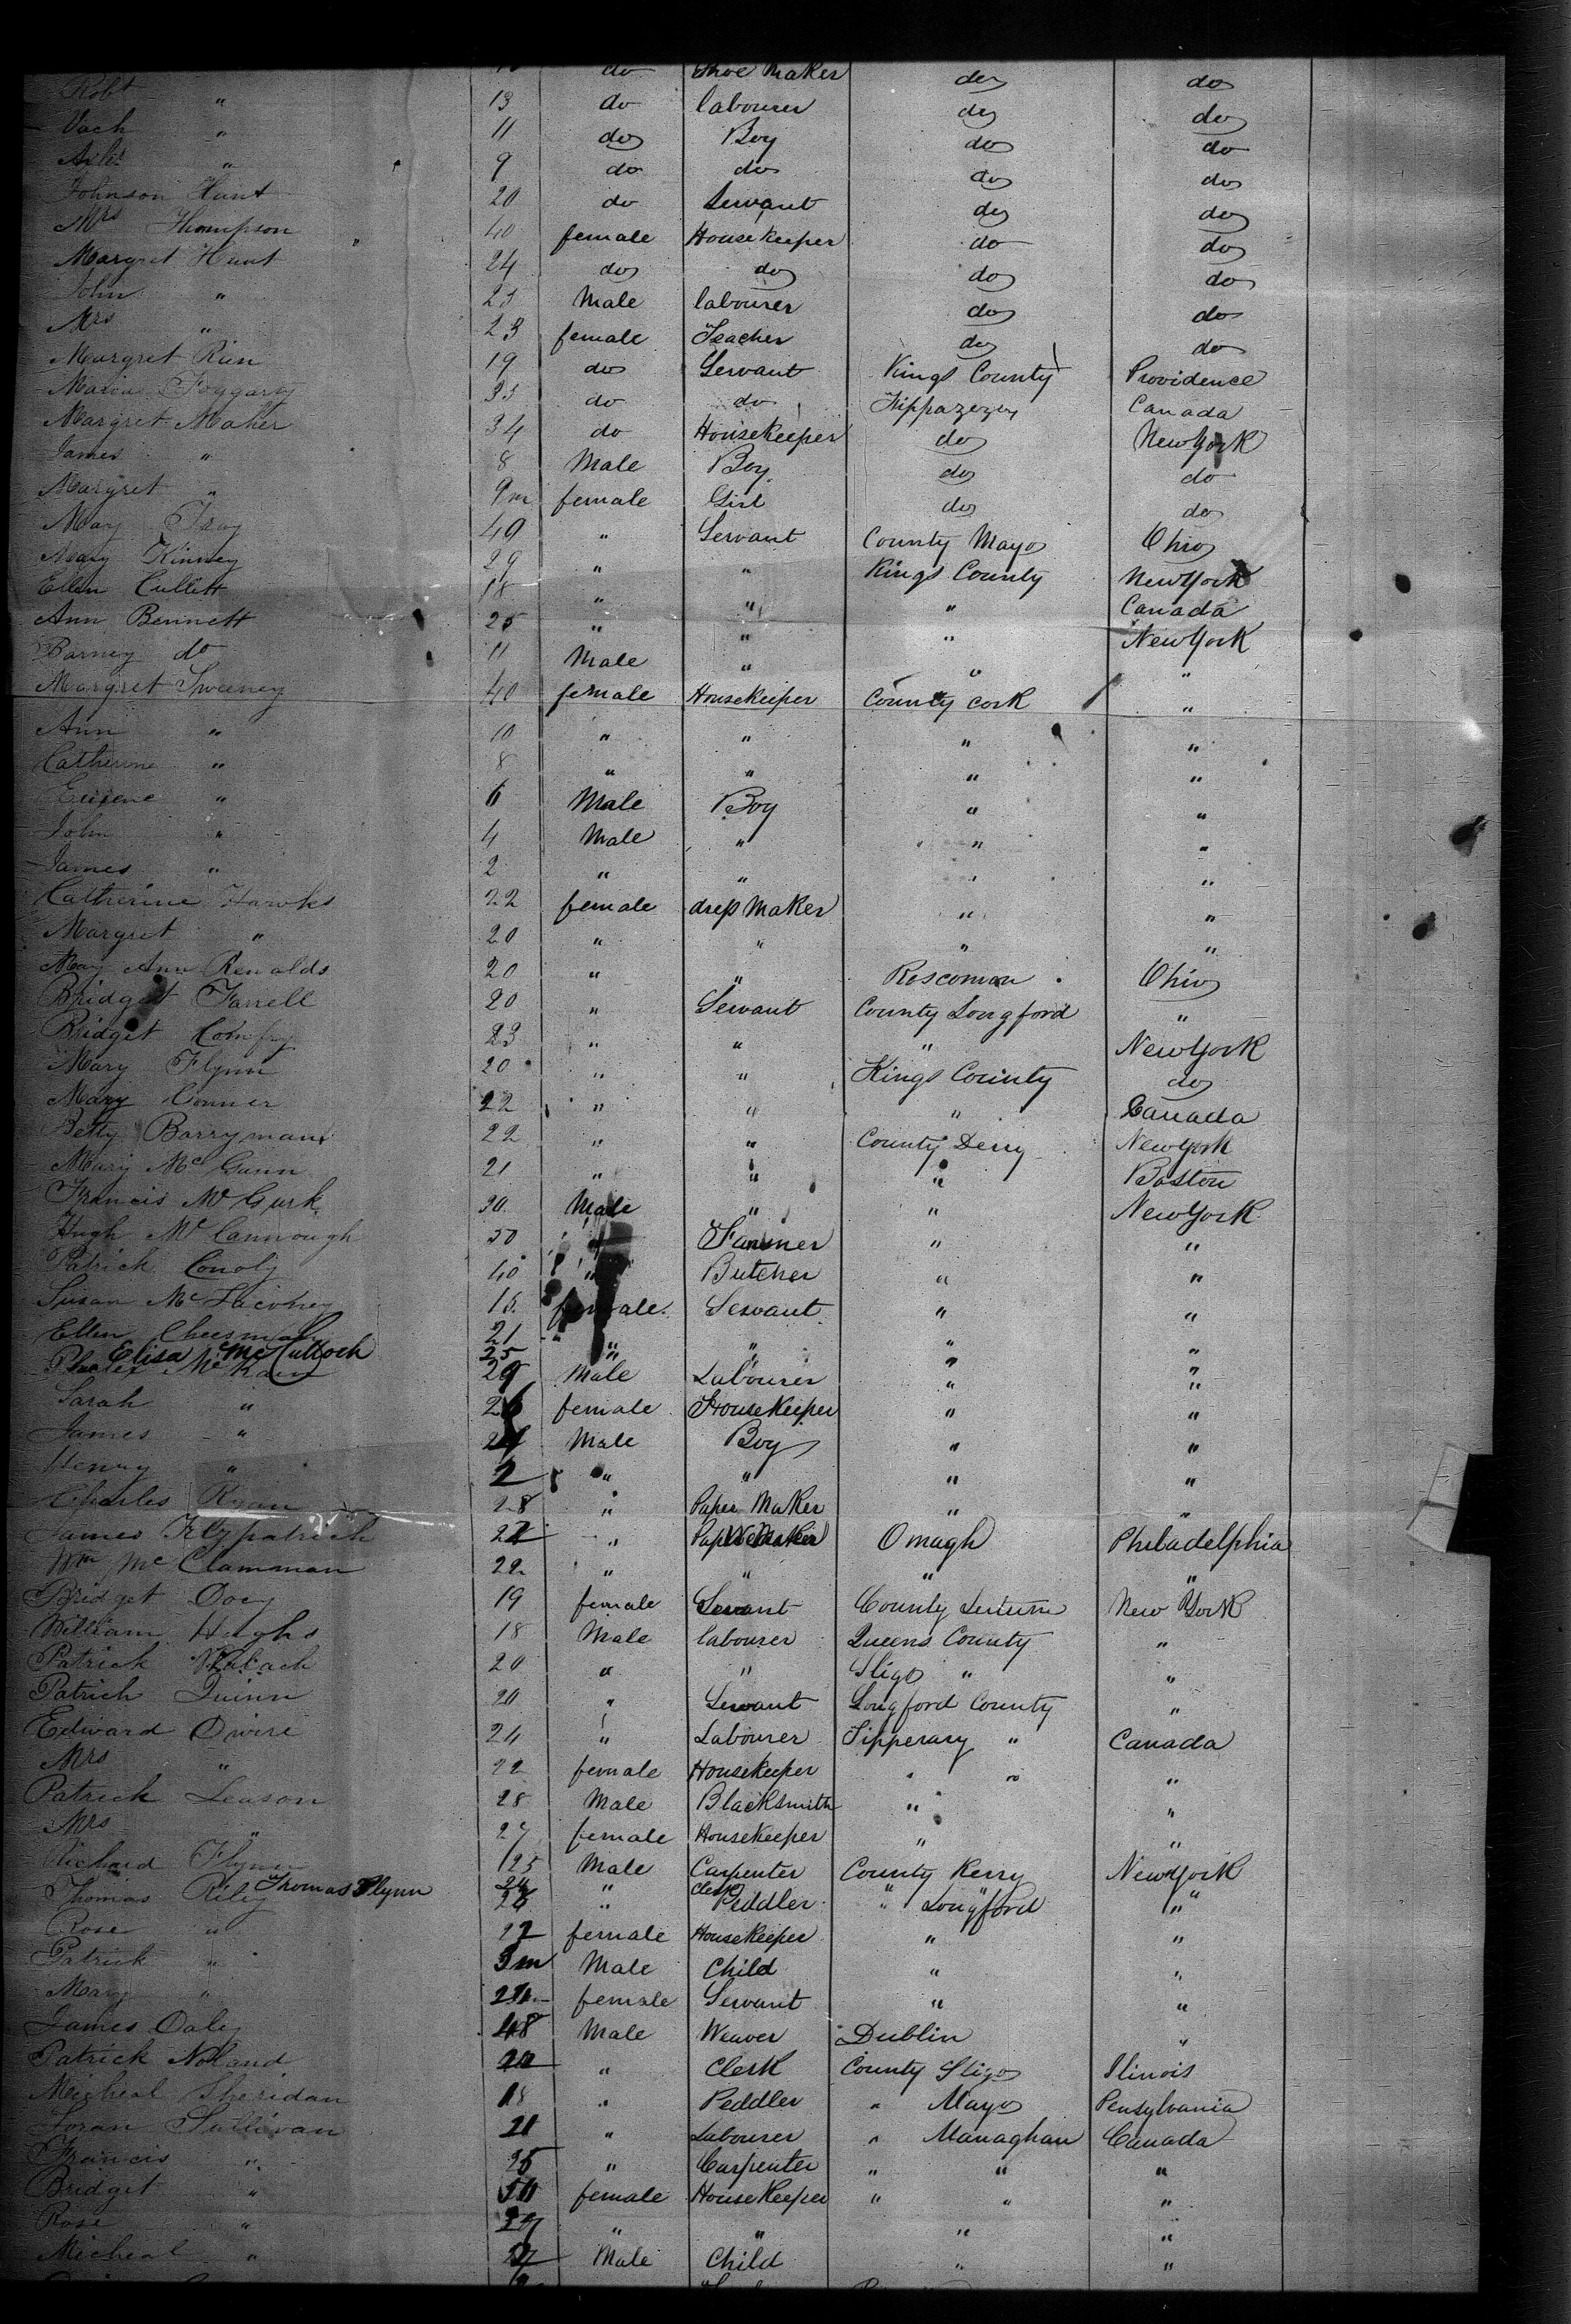 do Shoe Maker do do
Robt " 13 do labourer do do
" 11 do Boy do do
" 9 do do do do
Johnson Hunt 20 do Servant do do
Mrs Thompson 40 female Housekeeper do do
Margret Hunt 24 do do do do
John " 25 Male labourer do do
Mrs " 23 female Teacher do do
Margret 19 do Servant Kings County Providence
Maria Foggarty 35 do do Canada
Margret Maher 34 do Housekeeper do New York
James " 8 Male Boy do do
Margret " 9m female Girl do do
May 40 " Servant County Mayo Ohio
Mary Kinney 29 " " Kings County New York
Ellen Cullett 18 " " " Canada
Ann Bennett 25 " " " New York
Barney do 11 Male " " "
Margret Sweeney 40 female Housekeeper County Cork "
Ann " 10 " " " "
Catherine " 8 " " " "
Eugene " 6 Male Boy " "
John " 4 Male " " "
James " 2 " " " "
Catherine Hawks 22 female dress Maker " "
Margret " 20 " " " "
May Ann Renalds 20 " " Roscomon Ohio
Bridget Farrell 20 " Servant County Longford "
Bridget 23 " " " New York
Mary Flynn 20 " " Kings County do
Mary Conner 22 " " " Canada
Betty Barryman 22 " " County Derry New York
Mary Mc Gunn 21 " " " Boston
Francis Mc Gurk 30 Male " " New York
Hugh Mc Cannough 50 " Farmer " "
Patrick Conoly 40 " Butcher " "
Susan Mc 15 female Servant " "
Ellen Cheesman 21 " " " "
Elisa Mc Cullock 25 " " " "
Mc Kain 29 Male Labourer " "
Sarah " 26 female Housekeeper " "
James " Male Boy " "
Henry " 2 " " " "
Charles 28 " Paper Maker " "
James Fitzpatrick 22 " Omagh Philadelphia
Wm Mc Clamman 22 " " " "
Bridget Doey 19 female Servant County Leitrim New York
William Hughs 18 Male labourer Queens County "
Patrick 20 " " Sligo " "
Patrick Quinn 20 " Servant Longford County "
Edward Dwire 24 " Labourer Tipperary " Canada
Mrs " 22 female Housekeeper " " "
Patrick Leason 28 Male Blacksmith " "
Mrs " 27 female Housekeeper " "
Richard Flynn 25 Male Carpenter County Kerry New York
Thomas Flynn 24 " Clerk " "
Thomas Riley 26 " Peddler " Longford "
Rose " 22 female Housekeeper " "
Patrick " 3m Male Child " "
Mary " female Servant " "
James Daley 48 Male Weaver Dublin "
Patrick Noland " Clerk County Sligo Ilinois
Micheal Sheridan 18 " Peddler " Mayo Pensylvania
Sullivan 21 " Labourer " Managhan Canada
Francis " 25 " Carpenter " " "
Bridget " 50 female Housekeeper " " "
Rose " " " " "
Micheal " Male Child " "